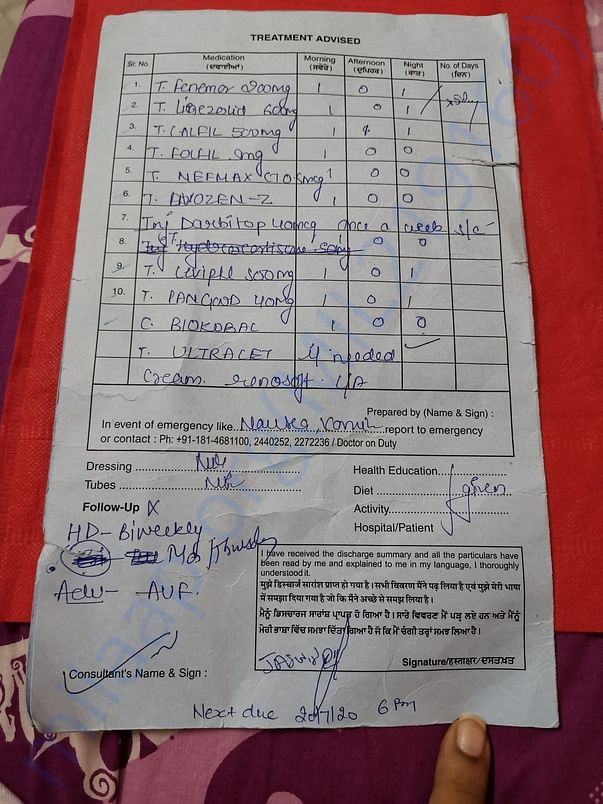 TREATMENT ADVISED
Sr. No. Medication (ਦਵਾਈਆਂ) Morning (ਸਵੇਰੇ) Afternoon (ਦੁਪਿਹਰ) Night (ਰਾਤ) No. of Days (ਦਿਨ)
1. T. Fenemor 200mg 1 0 1
2. T. Linezolid 600mg 1 0 1
3. T. CALFIL 500mg 1 1
4. T. FOLFIL mg 1 0 0
5. T. NEFMAX 1 0 0
6. T. -Z 1 0 0
7. Inj Darbitop 40mcg once a week s/c
8. Hydrocortisone 0 0
9. T. 500mg 1 0 1
10. T. 40mg 1 0 1
C. 1 0 0
T. ULTRACET if needed
Cream. renosoft L/A
Prepared by (Name & Sign) :
In event of emergency like Nausea, Vomit report to emergency
or contact : Ph: +91-181-4681100, 2440252, 2272236 / Doctor on Duty
Dressing Nil
Tubes Nil
Health Education
Diet given
Activity
Hospital/Patient
Follow-Up
HD- Biweekly
Adv- AVF.
I have received the discharge summary and all the particulars have
been read by me and explained to me in my language, I thoroughly
understood it.
मुझे डिस्चार्ज सारांश प्राप्त हो गया है। सभी विवरण मैंने पढ़ लिया है एवं मुझे मेरी भाषा
में समझा दिया गया है जो कि मैंने अच्छे से समझ लिया है।
ਮੈਨੂੰ ਡਿਸਚਾਰਜ ਸਾਰਾਂਸ਼ ਪ੍ਰਾਪਤ ਹੋ ਗਿਆ ਹੈ। ਸਾਰੇ ਵਿਵਰਣ ਮੈਂ ਪੜ੍ਹ ਲਏ ਹਨ ਅਤੇ ਮੈਨੂੰ
ਮੇਰੀ ਭਾਸ਼ਾ ਵਿੱਚ ਸਮਝਾ ਦਿੱਤਾ ਗਿਆ ਹੈ ਜੋ ਕਿ ਮੈਂ ਚੰਗੀ ਤਰ੍ਹਾਂ ਸਮਝ ਲਿਆ ਹੈ।
Signature/हस्ताक्षर/ਦਸਤਖ਼ਤ
Consultant's Name & Sign :
Next due 20/7/20 6 Pm